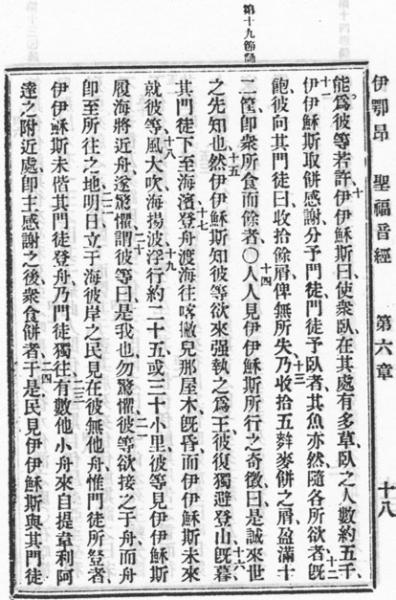 伊鄂昂　聖福音經　第六章　十八
能、爲彼等若許、伊伊穌斯曰、使衆臥、在其處有多草、臥之人數約五千、
伊伊穌斯取餅感謝、分予門徒、門徒予臥者、其魚亦然、隨各所欲者、旣
飽、彼向其門徒曰、收拾餘屑、俾無所失、乃收拾五麰麥餅之屑、盈滿十
二筐、卽衆所食而餘者、○人人見伊伊穌斯所行之奇徵、曰、是誠來世
之先知也、然伊伊穌斯知彼等欲來强執之爲王、彼復獨避登山、旣暮、
其門徒下至海濱、登舟渡海、往喀撇兒那屋木、旣昏、而伊伊穌斯未來
就彼等、風大吹、海揚波、浮行約二十五或三十小里、彼等見伊伊穌斯
履海將近舟、遂驚懼、謂彼等曰、是我也、勿驚懼、彼等欲接之于舟、而舟
卽至所往之地、明日立于海彼岸之民、見在彼無他舟、惟門徒所登者、
伊伊穌斯未偕其門徒登舟、乃門徒獨往、有數他小舟來自提韋利阿
達之附近處、卽主感謝之後、衆食餅者、于是民見伊伊穌斯與其門徒